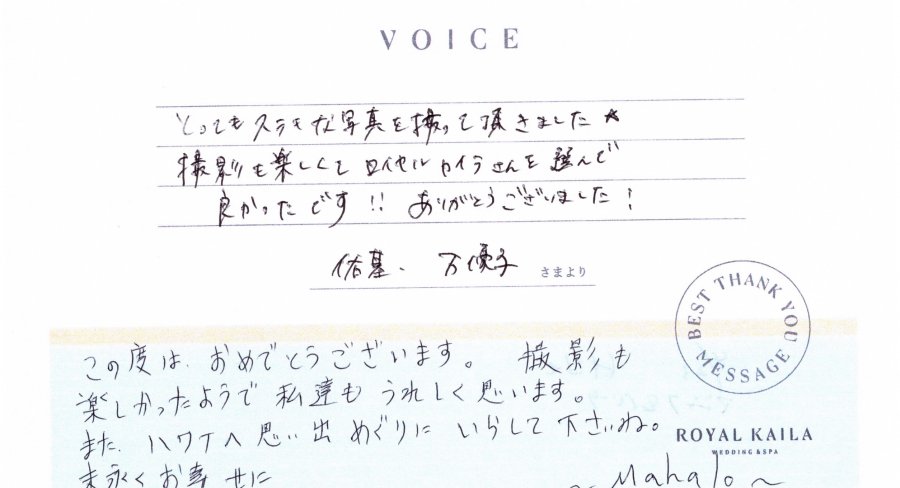 VOICE
とってもステキな写真を撮って頂きました★
撮影も楽しくて ロイヤルカイラさんを 選んで
良かったです!! ありがとうございました!
佑基、 万優子 さまより
BEST THANK YOU
MESSAGE
この度は、おめでとうございます。 撮影も
楽しかったようで 私達も うれしく思います。
また、ハワイへ 思い出めぐりに いらして下さいね。
ROYAL KAILA
WEDDING & SPA
末永くお幸せに
~ Mahalo ~